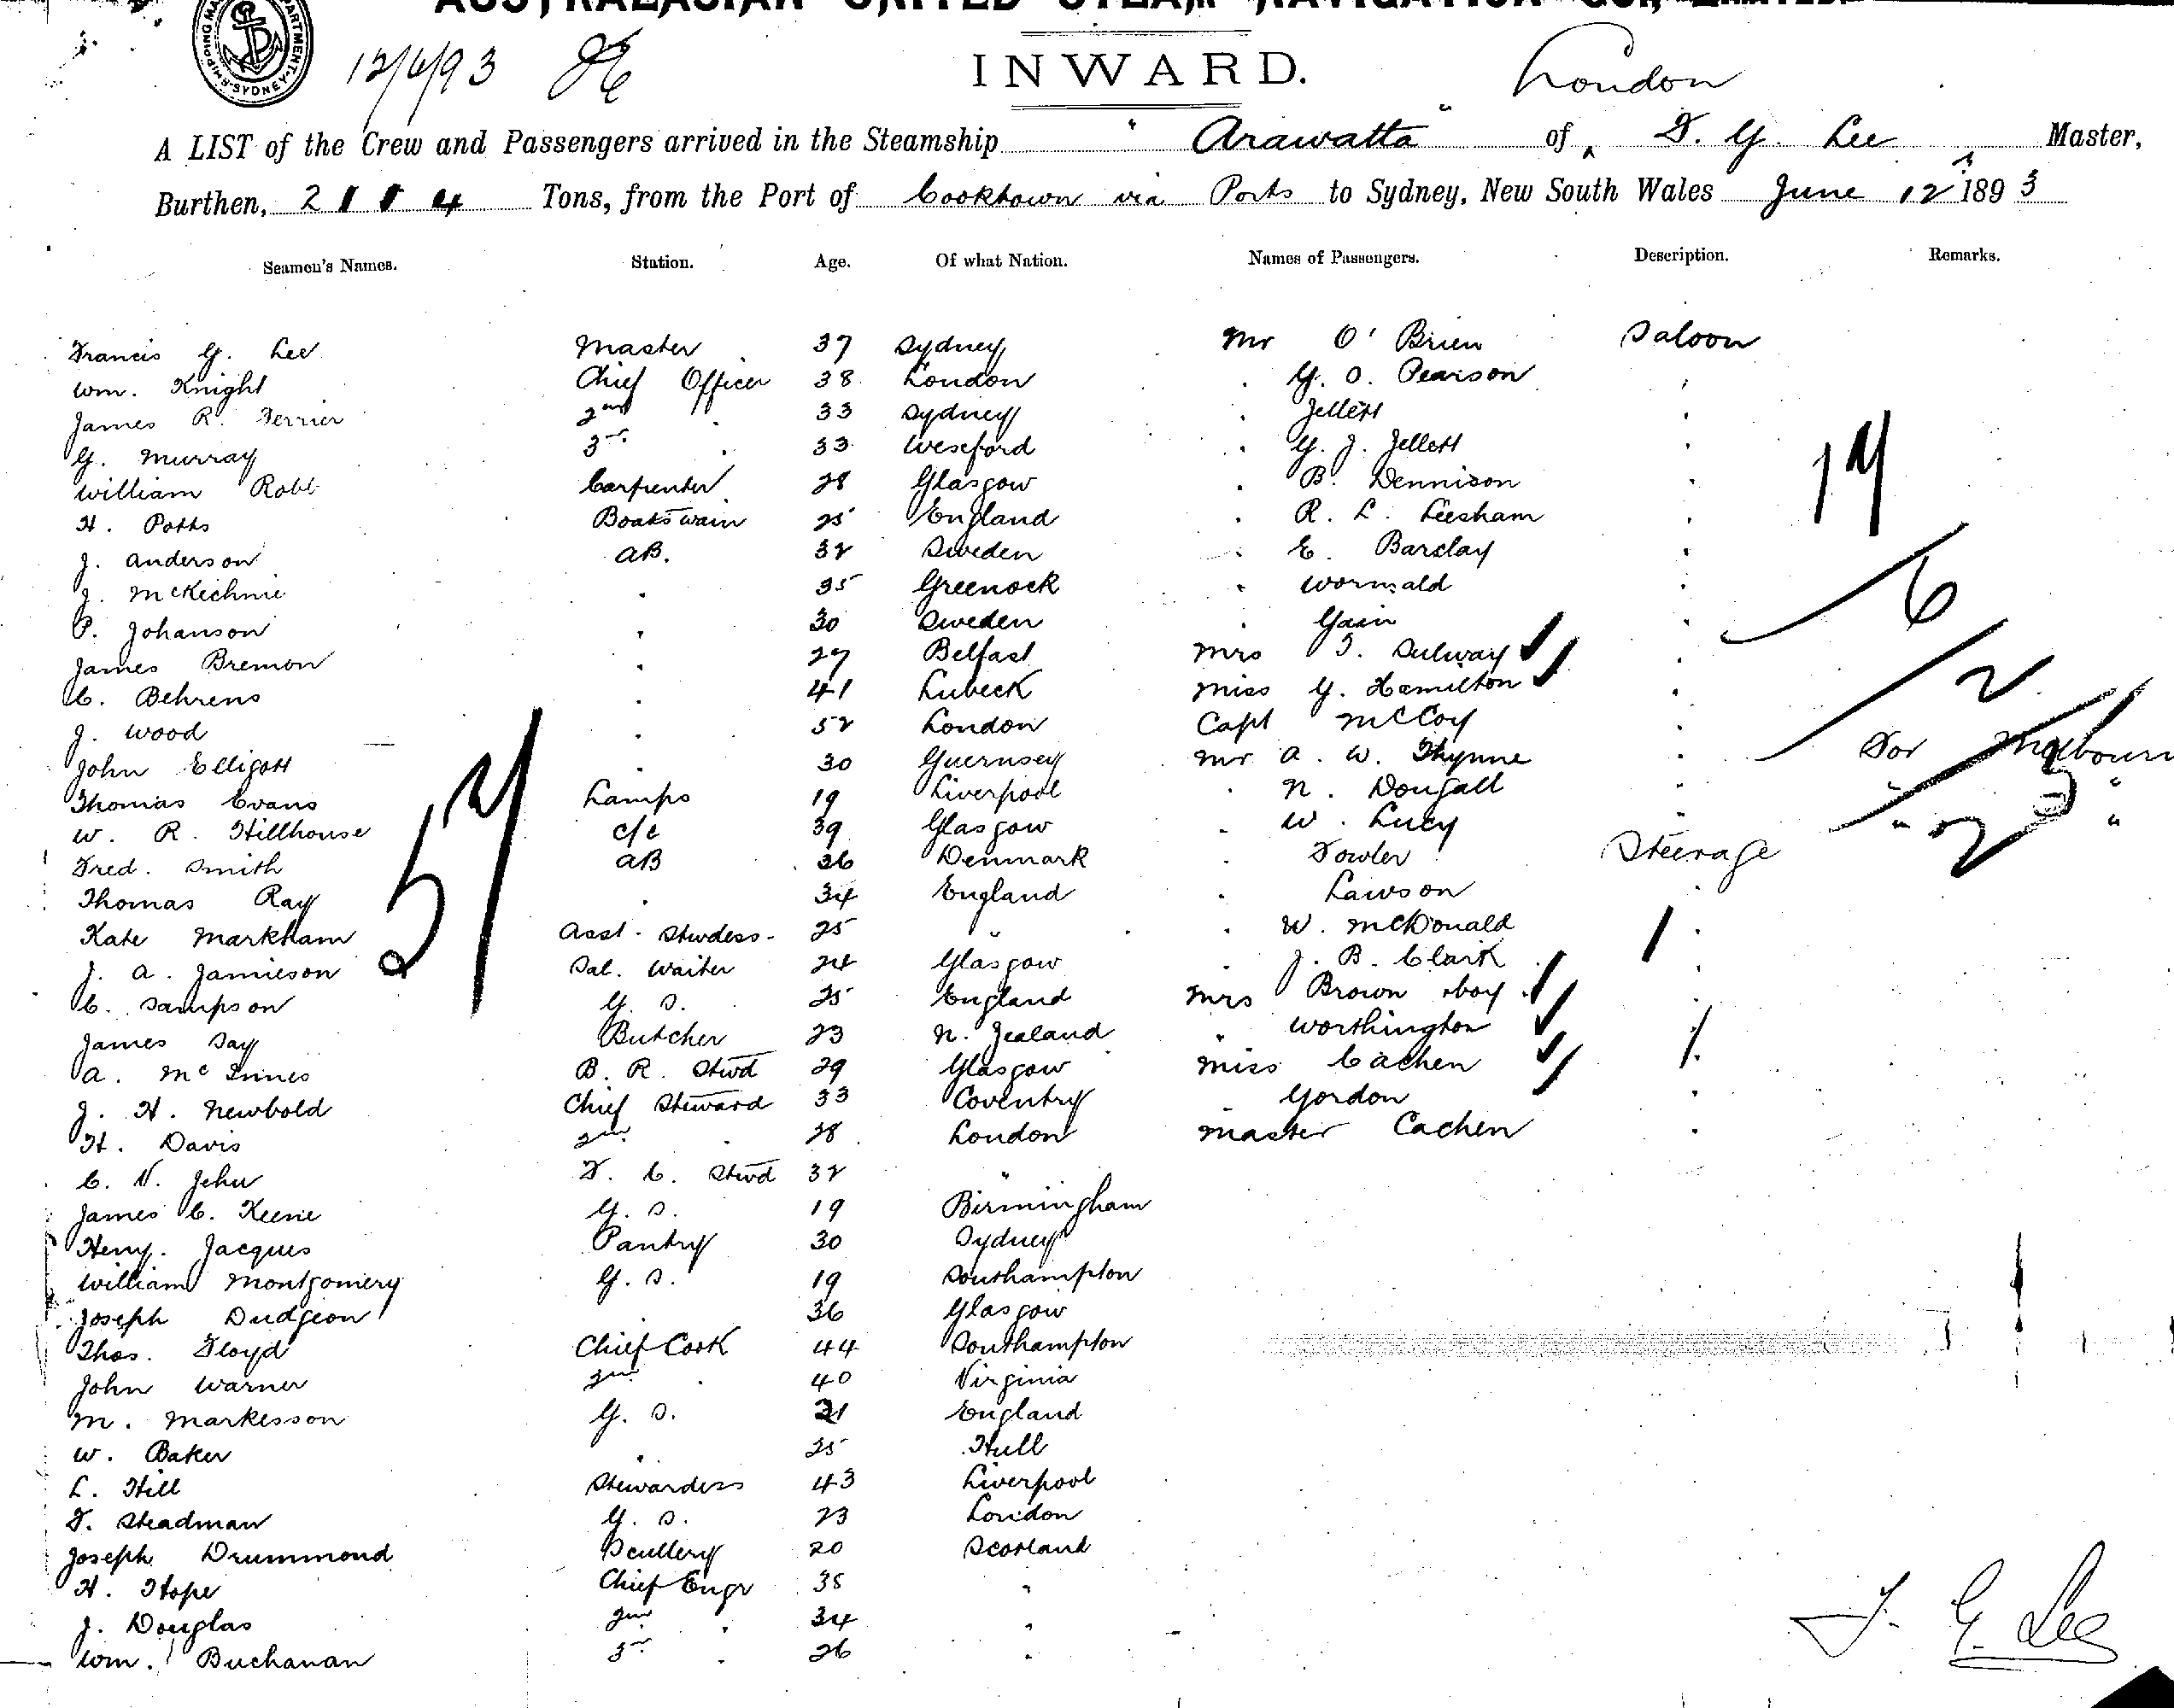 AUSTRALASIAN UNITED STEAM NAVIGATION CO., LIMITED.
SHIPPING MA PARTMENT SYDNEY
12/6/93
INWARD.
London
A LIST of the Crew and Passengers arrived in the Steamship "Arawatta" of F. G. Lee Master,
Burthen, 2114 Tons, from the Port of Cooktown via Ports to Sydney, New South Wales June 12 1893
Seamen's Names. Station. Age. Of what Nation. Names of Passengers. Description. Remarks.
Francis G. Lee Master 37 Sydney Mr O'Brien Saloon
Wm. Knight Chief Officer 38 London " G. O. Pearson "
James R. Ferrier 2nd " 33 Sydney " Jellett "
G. Murray 3rd " 33 Wexford " G. J. Jellett "
William Robb Carpenter 28 Glasgow " B. Dennison "
H. Potts Boatswain 25 England " R. L. Leesham "
J. Anderson AB. 32 Sweden " E. Barclay "
J. McKechnie " 35 Greenock " Wormald "
P. Johanson " 30 Sweden " Gain "
James Bremon " 27 Belfast Mrs T. Sulway "
C. Behrens " 41 Lubeck Miss G. Hamilton "
J. Wood " 52 London Capt McCoy "
John Elligott " 30 Guernsey Mr A. W. Thynne " For Melbourn
Thomas Evans Lamps 19 Liverpool " N. Dougall " " "
W. R. Hillhouse c/c 39 Glasgow " W. Lucy " " "
Fred. Smith AB 36 Denmark " Fowler Steerage
Thomas Ray " 34 England " Lawson "
Kate Markham Asst. Stwdess. 25 " " W. McDonald "
J. A. Jamieson Sal. Waiter 24 Glasgow " J. B. Clark "
C. Sampson G. S. 25 England Mrs Brown & boy "
James Day Butcher 23 N. Zealand " Worthington "
A. McInnes B. R. Stwd 29 Glasgow Miss Cachen "
J. H. Newbold Chief Steward 33 Coventry " Gordon "
H. Davis 2nd " 28 London Master Cachen "
C. N. Jehu F. C. Stwd 32 "
James C. Keene G. S. 19 Birmingham
Heny. Jacques Pantry 30 Sydney
William Montgomery G. S. 19 Southampton
Joseph Dudgeon 36 Glasgow
Thos. Floyd Chief Cook 44 Southampton
John Warner 2nd " 40 Virginia
M. Markesson G. S. 21 England
W. Baker " 25 Hull
L. Hill Stewardess 43 Liverpool
F. Steadman G. S. 23 London
Joseph Drummond Scullery 20 Scotland
H. Hope Chief Engr 38 "
J. Douglas 2nd " 34 "
Wm. Buchanan 3rd " 26 "
F. G. Lee